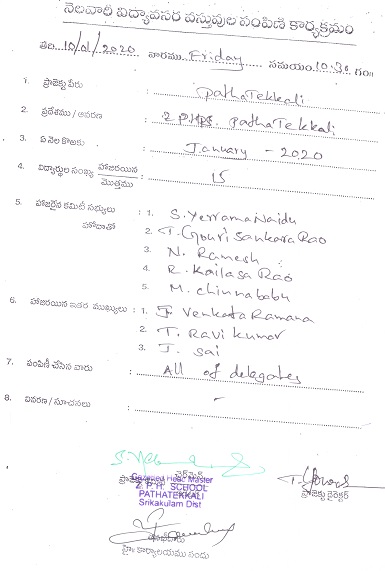 నెలవారీ విద్యావసర వస్తువుల పంపిణీ కార్యక్రమం
తేది: 10/01/2020 వారము Friday సమయం: 10:30 గం॥
1. ప్రాజెక్టు పేరు : PathaTekkali
2. ప్రదేశము / ఆవరణ : ZPHS. PathaTekkali
3. ఏ నెల కొఱకు : January - 2020
4. విద్యార్థుల సంఖ్య హాజరయిన / మొత్తము : 15
5. హాజరైన కమిటీ సభ్యులు : 1. S. Yerrama Naidu
హోదాతో 2. T. Gouri Sankara Rao
3. N. Ramesh
4. R. Kailasa Rao
5. M. chinnababu
6. హాజరయిన ఇతర ముఖ్యులు : 1. J. Venkata Ramana
2. T. Ravi kumar
3. J. sai
7. పంపిణీ చేసిన వారు : All of delagates
8. వివరణ / సూచనలు : -
చైర్మెన్
Gazetted Head Master
Z. P. H. SCHOOL
PATHATEKKALI
Srikakulam Dist
ప్రాజెక్టు డైరెక్టర్
హై: కార్యాలయము నందు